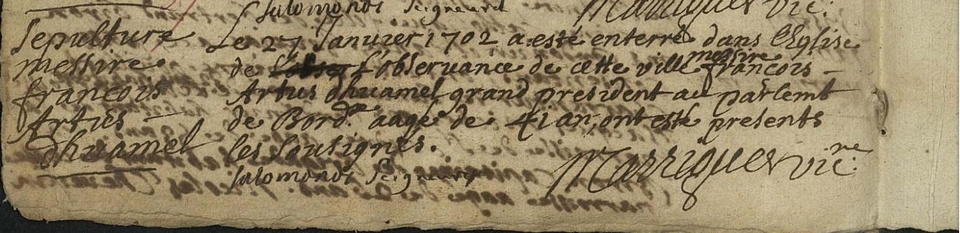 Salomondi Seigneuret
Marriquer vic.
Sepulture
messire
francois
Artus
dhuamel
Le 27 Janvier 1702 a esté enterré dans l'Eglise
de l'observance de cette ville messire francois
Artus dhuamel grand president au parlemt
de Bord. aagé de 41 an, ont esté presents
les sousignes.
Salomondi Seigneuret
Marriquer vic.re